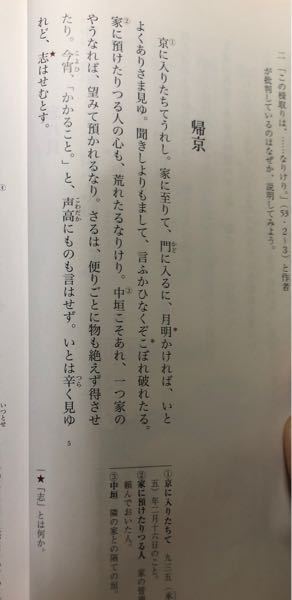 二 「この楫取りは、……なりけり。」(53・2〜3)と作者
が批判しているのはなぜか、説明してみよう。
帰京
①京に入りたちてうれし。家に至りて、門に入るに、月明かければ、いと
かど
よくありさま見ゆ。聞きしよりもまして、言ふかひなくぞこぼれ破れたる。
②家に預けたりつる人の心も、荒れたるなりけり。③中垣こそあれ、一つ家の
やうなれば、望みて預かれるなり。さるは、便りごとに物も絶えず得させ
たり。今宵、「かかること。」と、声高にものも言はせず。いとは辛く見ゆ
こよひ
こわだか
つら
れど、★志はせむとす。
5
①京に入りたちて 九三五(承
五)年二月十六日のこと。
②家に預けたりつる人 家の管理
頼んでおいた人。
③中垣 隣の家との隔ての垣。
★「志」とは何か。
③
いつとせ